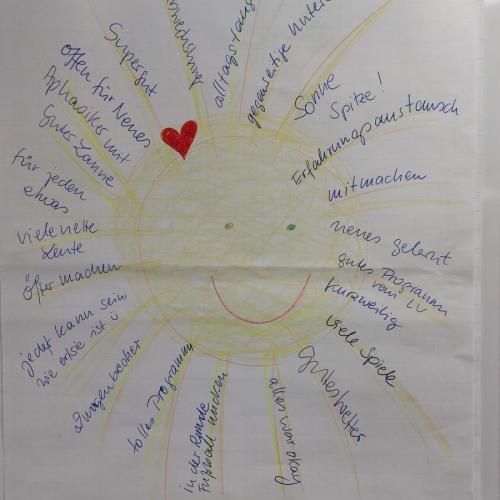 Supergut
offen für Neues
Aphasiker mit
guter Laune
für jeden
etwas
viele nette
Leute
öfter machen
jeder kann sein,
wie er/sie ist ü
Zungenbrecher
tolles Programm
in der Runde
Fußball
alles war okay
gutes Wetter
viele Spiele
kurzweilig
gutes Programm
vom LV
neues gelernt
mitmachen
Erfahrungsaustausch
Spitze!
Sonne
gegenseitige
alltagstaug